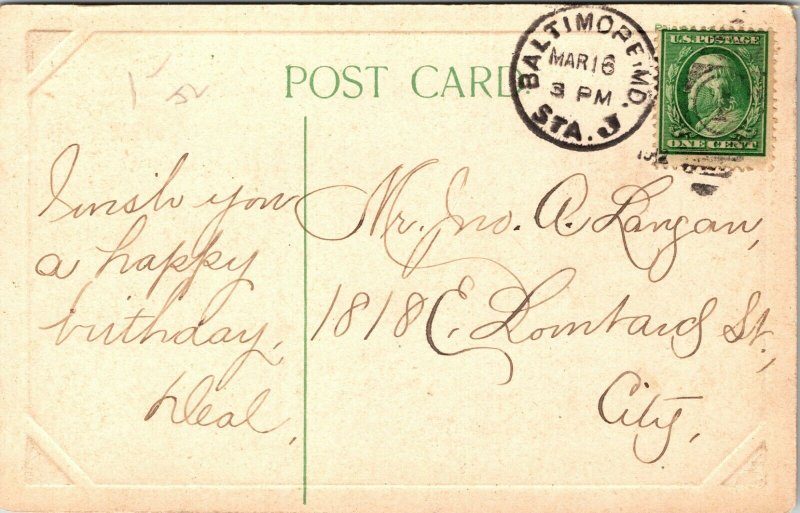 POST CARD
BALTIMORE, MD.
MAR 16
3 PM
STA. J
U.S. POSTAGE
ONE CENT
I wish you
a happy
birthday.
Deal,
Mr. Jno. A. Langan,
1818 E. Lombard St.,
City,